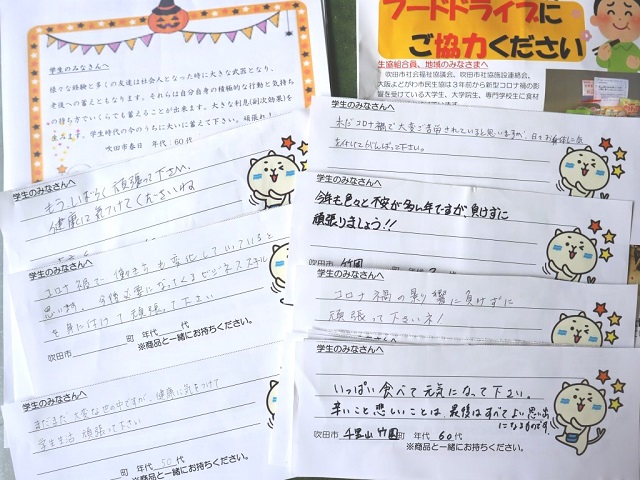 学生のみなさんへ
様々な体験と多くの友達は社会人となった時に大きな武器となり、
老後への蓄えともなります。それらは自分自身の積極的な行動と気持ち
の持ち方でいくらでも蓄えることが出来ます。大きな利息(副次効果)を
生みます。学生時代の今のうちに大いに蓄えて下さい。頑張れ!
吹田市春日 年代(60代
フードドライブに
ご協力ください
生協組合員、地域のみなさまへ
吹田市社会福祉協議会、吹田市社協施設連絡会、
大阪よどがわ市民生協は3年前から新型コロナ禍の影
響を受けている大学生、大学院生、専門学校生に食材
学生のみなさんへ
もうしばらく頑張って下さい。
健康に気つけてくださいね
学生のみなさんへ
コロナ禍で働き方も変化していっていると
思います。今後必要になってくるビジネススキル
を身に付けて頑張って下さい
吹田市 町 年代 代
※商品と一緒にお持ちください。
学生のみなさんへ
まだまだ大変な世の中ですが、健康に気をつけて
学生生活 頑張って下さい
町 年代 50代
※商品と一緒にお持ちください。
学生のみなさんへ
まだコロナ禍で大変ご苦労されていると思いますが、日々お身体に気
を付けてがんばって下さい。
学生のみなさんへ
今年も色々と不安が多い年ですが、負けずに
頑張りましょう!!
吹田市 竹園
学生のみなさんへ
コロナ禍の影響に負けずに
頑張って下さいネ!
吹田市
学生のみなさんへ
いっぱい食べて元気になって下さい。
辛いこと悲しいことは、最後はすべてよい思い出
になるものです。
吹田市 千里山竹園町 年代 60代
※商品と一緒にお持ちください。